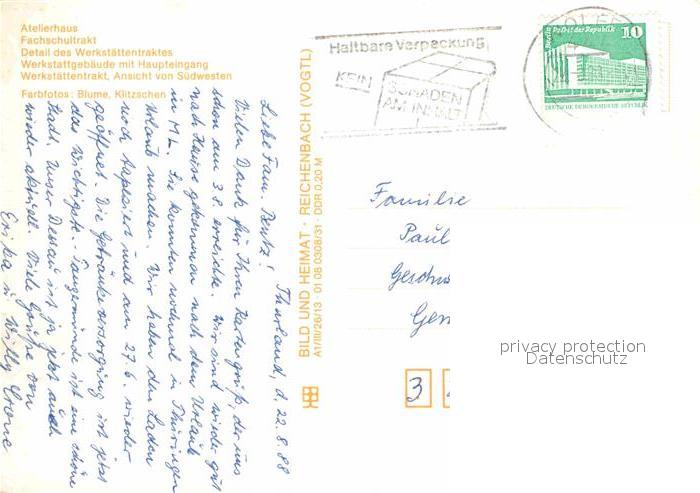 Atelierhaus
Fachschultrakt
Detail des Werkstättentraktes
Werkstattgebäude mit Haupteingang
Werkstättentrakt, Ansicht von Südwesten
Farbfotos: Blume, Klitzschen
Thurland, d. 22.8.88
Liebe Fam. Bentz!
Vielen Dank für Ihren Kartengruß, der uns
schon am 3.8. erreichte. Wir sind wieder gut
nach Hause gekommen nach dem Urlaub
in M L. Sie konnten nochmal in Thüringen
Urlaub machen. Wir haben den Laden
noch tapeziert und am 27.6. wieder
geöffnet. Die Getränkeversorgung ist jetzt
das Wichtigste. Tangermünde ist eine schöne
Stadt. Unser Dessau ist ja jetzt auch
wieder aktuell. Viele Grüße von
Erika u. Willy
BILD UND HEIMAT · REICHENBACH (VOGTL)
A1/III/26/13 · 01 08 0308/31 · DDR 0,20 M
Haltbare Verpackung
KEIN SCHADEN
AM INHALT
10
Berlin, Palast der Republik
DEUTSCHE DEMOKRATISCHE REPUBLIK
Familie
Paul
Geschw
Gen
3
privacy protection
Datenschutz